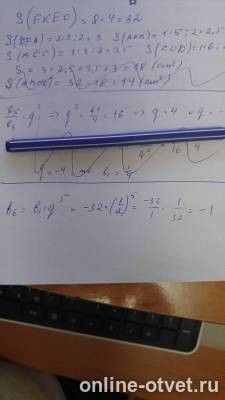 S(FKEO) = 8·4 = 32
S(DFA) = 2·3:2 = 3 S(AKB) = 1·5:2 = 2,5
S(BEC) = :2 = 3,5 S(COD) = 1·6:
S = 3+2,5+3,5+ = 18 (cm²)
= 32 - 18 = 14 (cm²)
b5/b3 = q² => q² = 64/4 = 16 => q = 4 u q = -
q = -4 b₁ = 1/4 4² 16 4
b₆ = b₁·q⁵ = -32·(1/2)⁵ = -32/1 · 1/32 = -1
online-otvet.ru